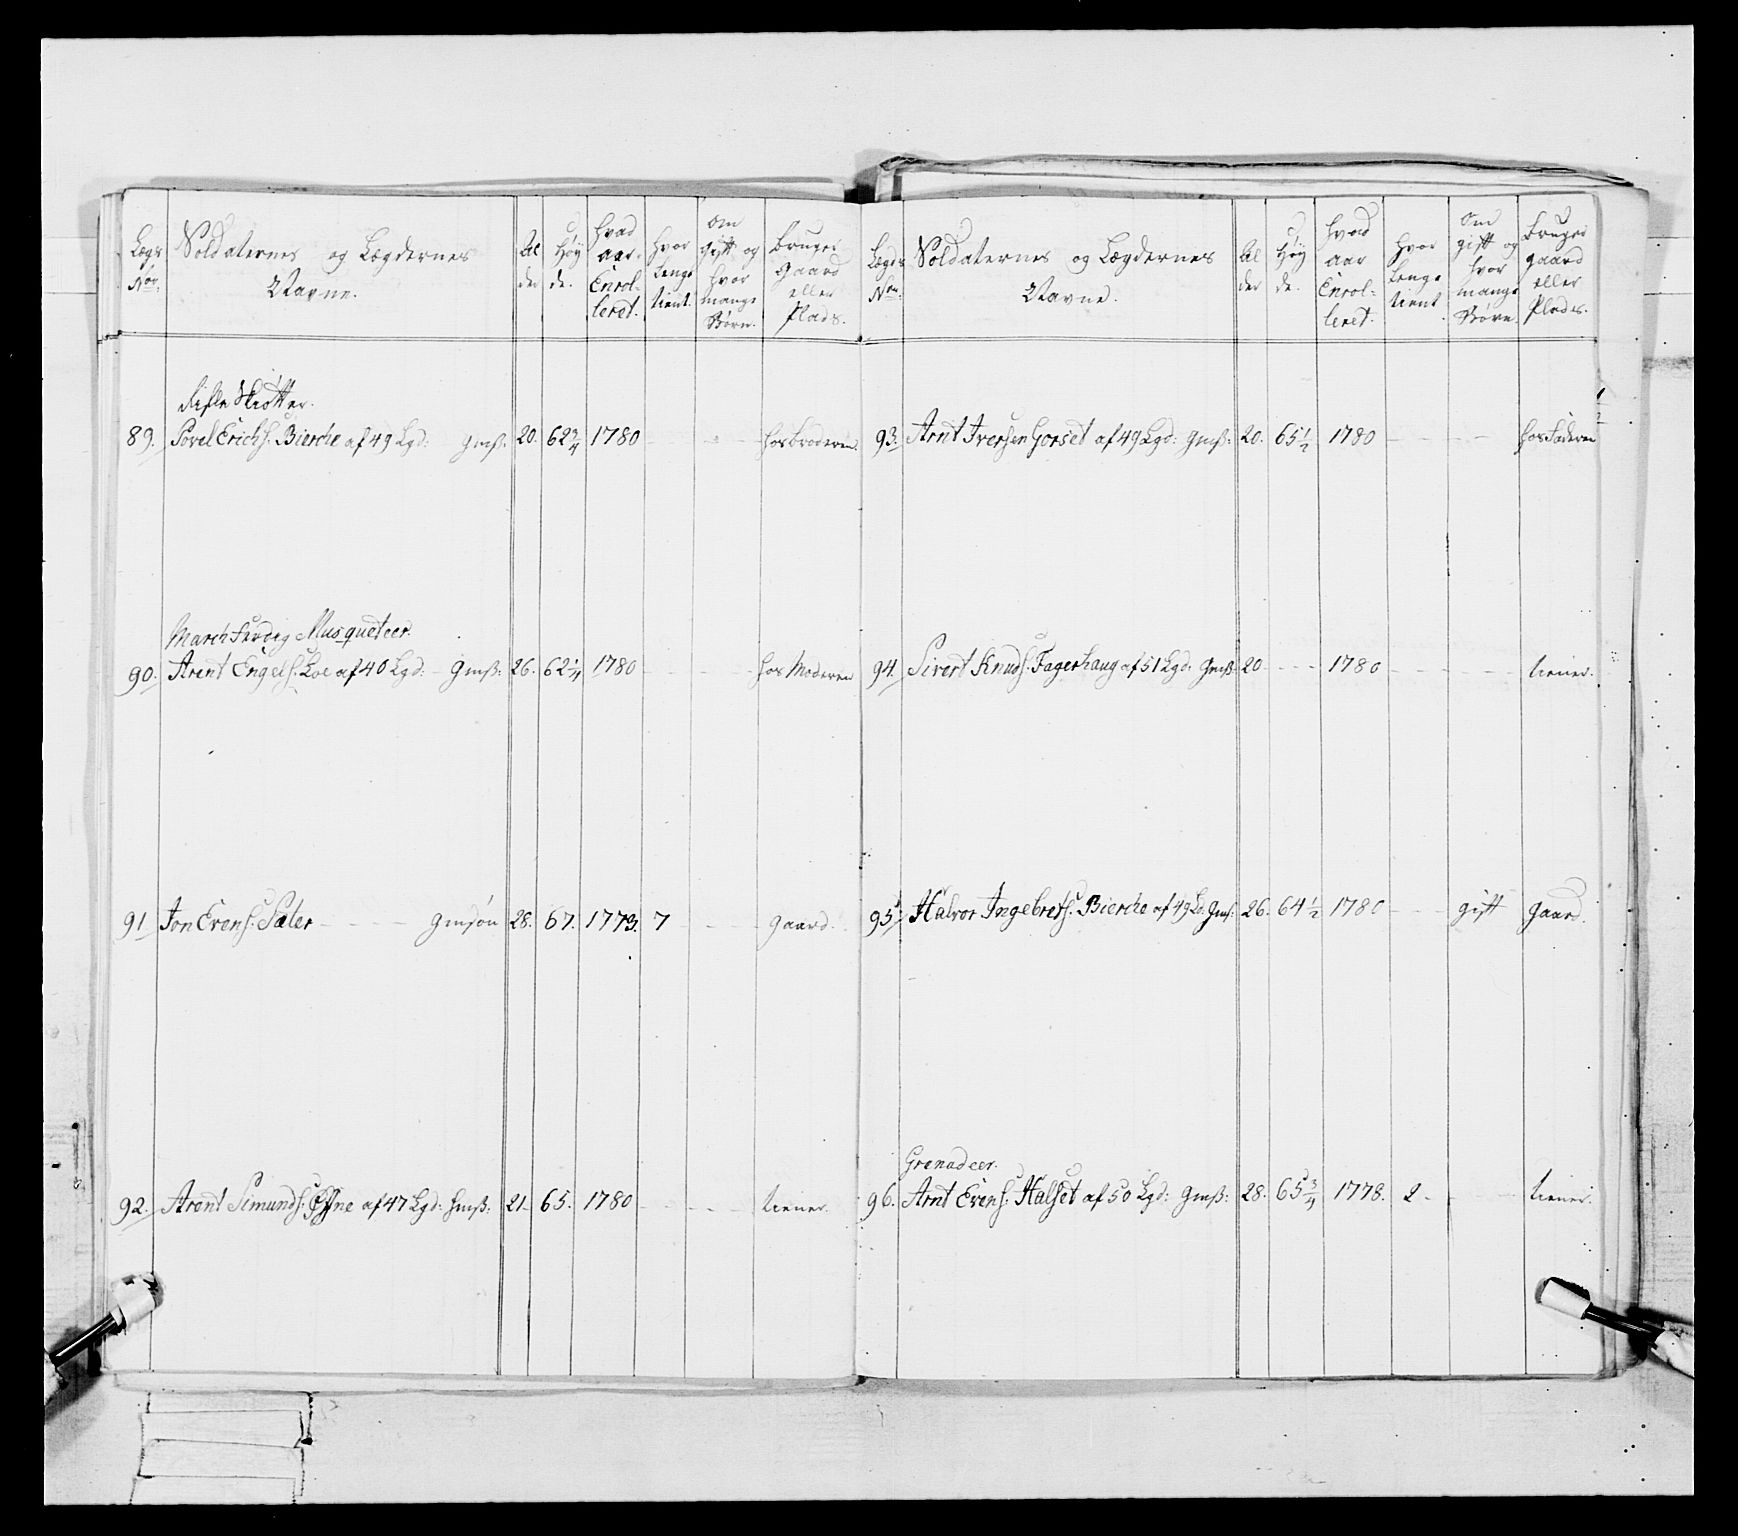 Lægs Nor. Soldaternes og Lægdernes Navne. Alder Høyde. Hvad aar Enrolleret. Hvor lenge tient. Om gift og hvor mange Børn. Bruger Gaard eller Plads.
Rifle Skiøtter.
89. Povel Erichs. Bierche af 49 Lgd: Gmß: 20. 62 3/4 1780 - - - hos broderen.
March Færdig Musqueteer.
90. Arent Engels. Loe af 40 Lgd: - Gmß: 26. 62 1/4 1780 - - - hos Moderen
91 Jon Evens. Sæter - - - Gmsøn 28. 67. 1773. 7 - - - gaard.
92. Arent Simunds. af 47 Lgd: Gmß. 21. 65. 1780 - - - tiener.
Lægds Nor. Soldaternes og Lægdernes Navne. Alder Høyde. Hvad aar Enrolleret. Hvor lenge tient. Om gift og hvor mange Børn. Bruger gaard eller Plads.
93. Arnt Iversen Gorset af 49 Lgd: Gmß: 20. 65 1/2 1780 - - - hos Faderen
94. Sivert Knuds. Fagerhaug af 51 Lgd. Gmß: 20 - - - 1780 - - - tiener.
95. Halvor Ingebrets. Bierche af 49 Ld. Gmß. 26. 64 1/2 1780 - - - gift gaard.
Grenadeer.
96. Arnt Evens. Halset af 50 Lgd: Gmß: 28. 65 3/4 1778. 2 - - tiener.